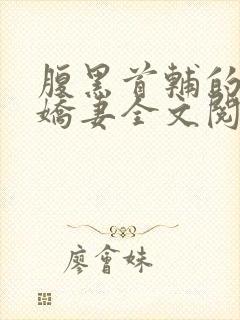 腹黑首輔的
嬌妻全文閱
廖會妹